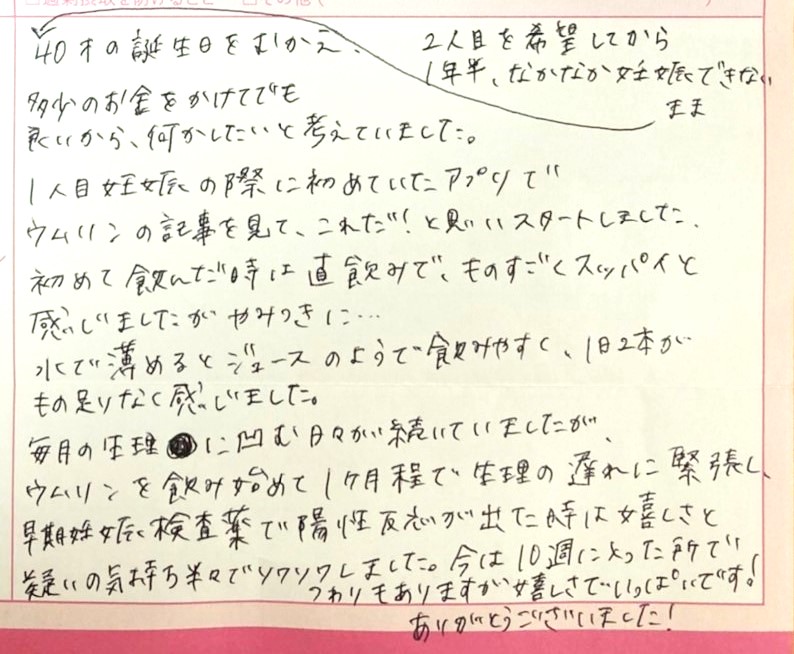 2人目を希望してから
1年半、なかなか妊娠できない
まま
40才の誕生日をむかえ、
多少のお金をかけてでも
良いから、何かしたいと考えていました。
1人目妊娠の際に初めていたアプリで
ウムリンの記事を見て、これだ!と思いスタートしました。
初めて飲んだ時は直飲みで、ものすごくスッパイと
感じましたがやみつきに…
水で薄めるとジュースのようで飲みやすく、1日2本が
もの足りなく感じました。
毎月の生理に凹む日々が続いていましたが、
ウムリンを飲み始めて1ヶ月程で生理の遅れに緊張し、
早期妊娠検査薬で陽性反応が出た時は嬉しさと
疑いの気持ち半々でソワソワしました。今は10週に入った所で
つわりもありますが嬉しさでいっぱいです!
ありがとうございました!